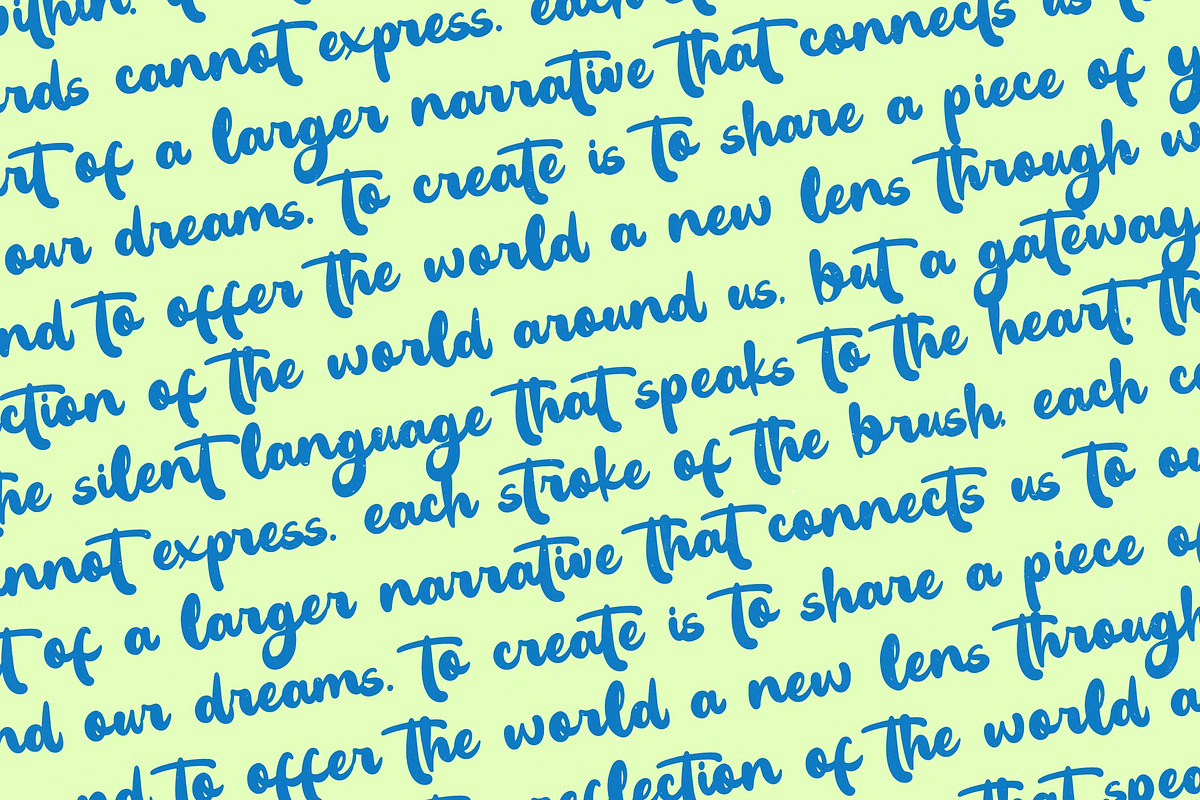 within.
rds cannot express. each
rt of a larger narrative that connects us t
our dreams. to create is to share a piece of y
nd to offer the world a new lens through w
ction of the world around us, but a gateway
he silent language that speaks to the heart. th
nnot express. each stroke of the brush, each c
t of a larger narrative that connects us to ou
nd our dreams. to create is to share a piece of
nd to offer the world a new lens through
reflection of the world a
that spea